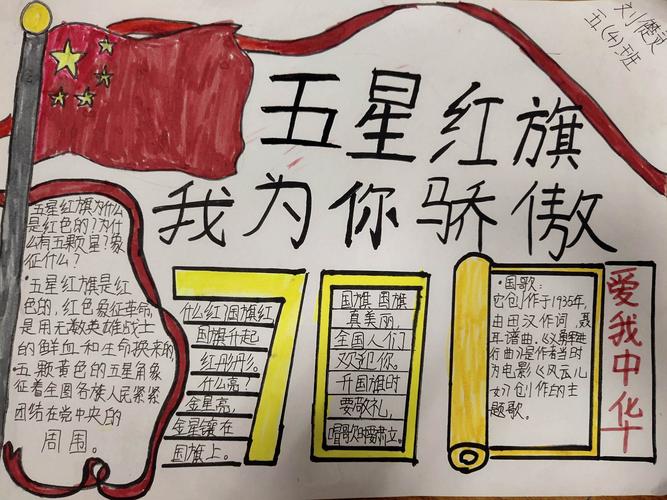 五(4)班
五星红旗
我为你骄傲
五星红旗为什么
是红色的?为什
么有五颗星?象
征什么?
·五星红旗是红
色的,红色象征革命,
是用无数英雄战士
的鲜血和生命换来的,
五颗黄色的五星角象
征着全国各族人民紧紧
团结在党中央的
周围。
什么红?国旗红
国旗升起
红彤彤。
什么亮?
金星亮,
金星镶在
国旗上。
国旗国旗
真美丽,
全国人们
欢迎你。
升国旗时
要敬礼,
唱歌时要肃立。
·国歌:
它创作于1935年,
由田汉作词,聂
耳谱曲.《义勇军进
行曲》是作者当时
为电影《风云儿
女》创作的主
题歌。
爱我中华